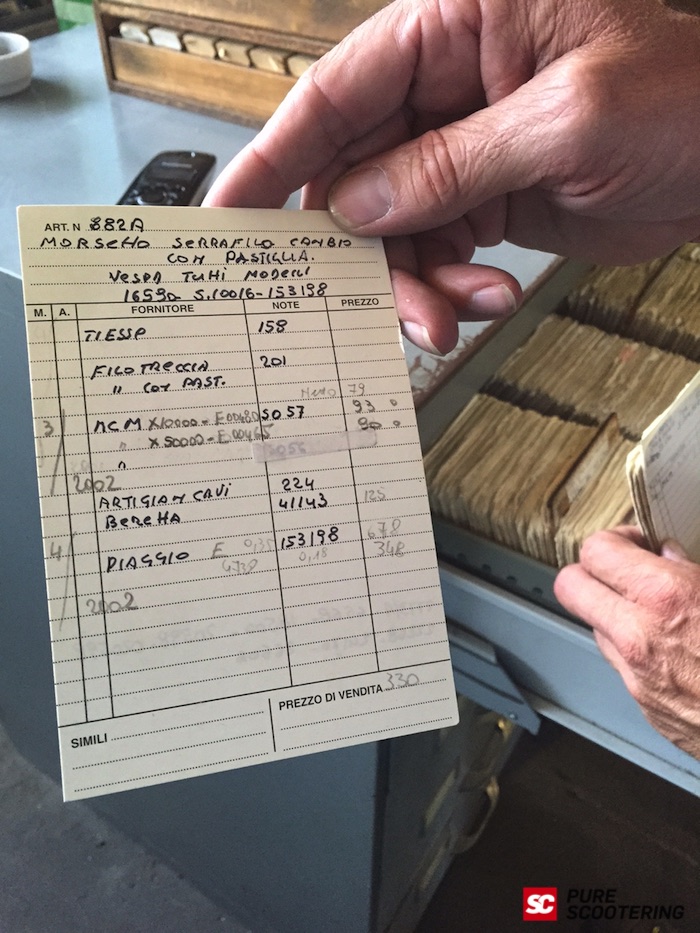 ART. N 882A
MORSETTO SERRAFILO CAMBIO
CON PASTIGLIA.
VESPA TUTTI MODELLI
16590 S.10016-153198
M. A. FORNITORE NOTE PREZZO
TIESSE 158
FILO TRECCIA 201
" CON PAST.
Netto 79
3 MCM X10000 - E00480 5057 93
" X 50000 - E00465 90
"
2002
ARTIGIAN CAVI 224
BERETTA 41143 125
4 PIAGGIO E 0,35 153198 678
4738 0,18 348
2002
SIMILI
PREZZO DI VENDITA 330
SC PURE SCOOTERING